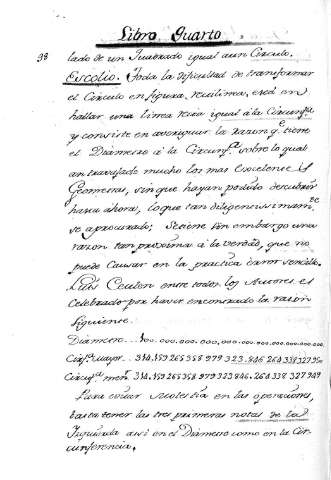 Libro Quarto
98
lado de un Quadrado igual a un Circulo.
Escolio. Toda la dificultad de transformar
el Circulo en figura rectilinea, està en
hallar una linea recta igual á la Circunfª
y consiste en averiguar la razon qe. tiene
el Diametro á la Circunfª sobre lo qual
an travajado mucho los mas excelentes
Geometras, sin que hayan podido descubrir
hasta ahora, lo que tan diligentissimamte
se a procurado; Se tiene sin embargo una
razon tan proxima á la verdad, que no
puede causar en la practica error sencible.
Ceulen entre todos los Autores es
Celebrado por haver encontrado la razon
siguiente.
Diametro 100.000.000.000.000.000.000
Circfª mayor. 314.159.265.358.979.323.846.264.338.327.950
Circufª menr. 314.159.265.358.979.323.846.264.338.327.949
Para evitar molestia en las operaciones,
basta tener las tres primeras notas de la
Izquierda assi en el Diametro como en la Cir-
cunferencia.